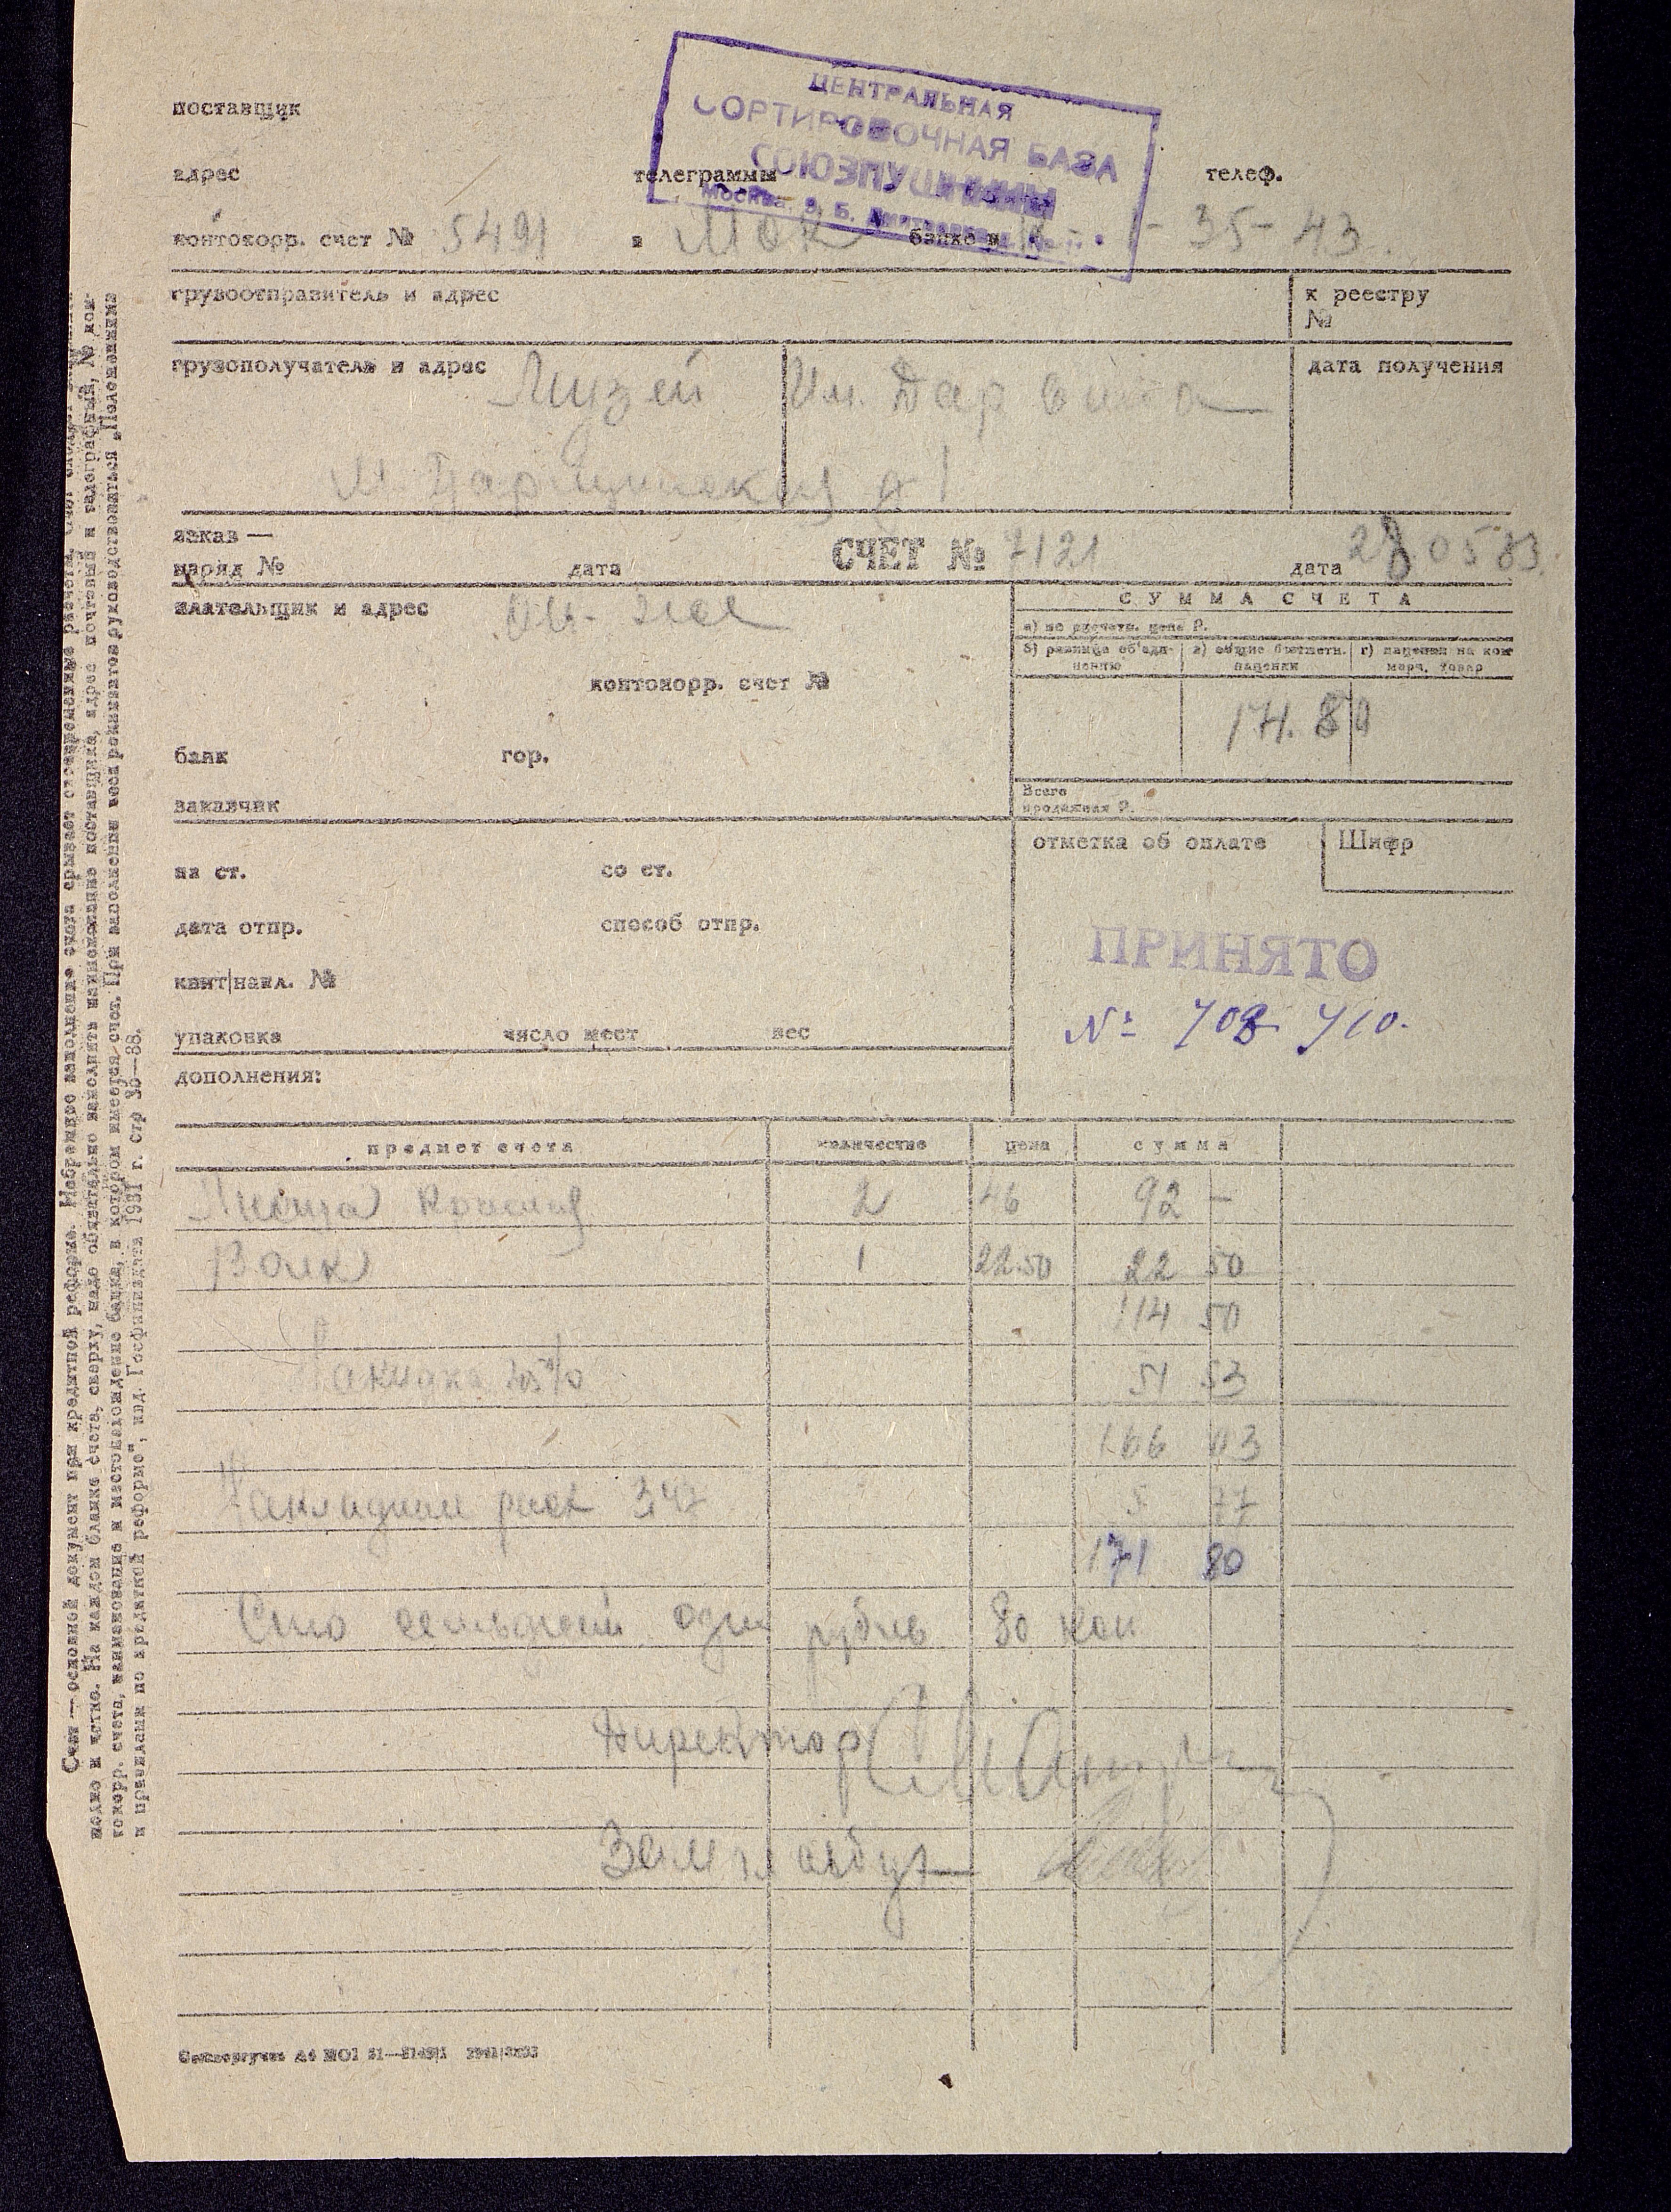 ЦЕНТРАЛЬНАЯ
СОРТИРОВОЧНАЯ БАЗА
СОЮЗПУШНИНЫ
Москва, 9, Б.
поставщик
адрес телеграммы телеф.
контокорр. счет № 5491 в Мос банке и 1-35-43
грузоотправитель и адрес
к реестру
№
грузополучатель и адрес Музей Им. Дарвина
дата получения
д 1
заказ —
наряд № дата СЧЕТ № 7121 дата 28 05 33
плательщик и адрес
СУММА СЧЕТА
а) по расчетн. цене Р.
б) разница об'еди-
нению
в) общие бюджетн.
наценки
г) наценки на ком
мерч. товар
контокорр. счет №
174. 80
банк гор.
заказчик
Всего
продажная Р.
отметка об оплате
Шифр
на ст. со ст.
дата отпр. способ отпр.
ПРИНЯТО
квит|накл. №
№ 708 710.
упаковка число мест вес
дополнения:
предмет счета количество цена сумма
Лисица красная 2 46 92 —
Волк 1 22.50 22 50
114 50
Накидка 45% 51 53
166 03
Накладные расх 347 5 77
171 80
Сто семьдесят один рубль 80 коп
Директор
Зам гл бух
Счет — основной документ при кредитной реформе. Небрежное заполнение счета срывает своевременные расчеты.
четко. На каждом бланке счета, сверху, надо обязательно заполнить наименование поставщика, адрес почтовый и телеграфный, № кон-
токорр. счета, наименование и местонахождение банка, в котором имеется счет. При заполнении всех реквизитов руководствоваться „Положениями
и правилами по кредитной реформе“, изд. Госфиниздата 1931 г. стр 36—88.